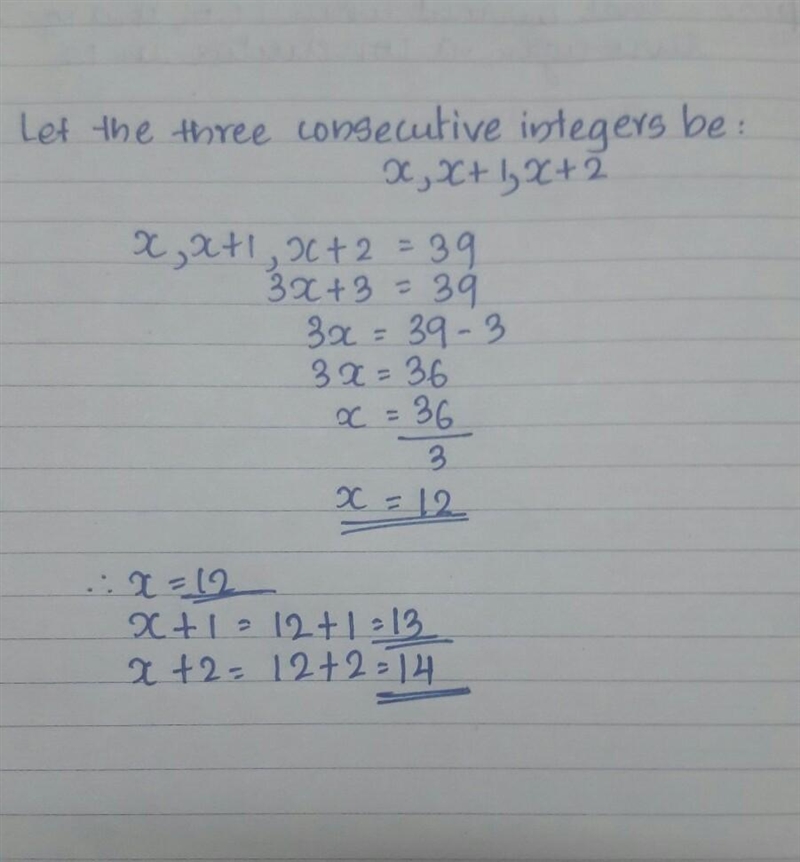 Let the three consecutive integers be:
x, x+1, x+2
x, x+1, x+2 = 39
3x+3 = 39
3x = 39 - 3
3x = 36
x = 36
3
x = 12
∴ x = 12
x+1 = 12+1 = 13
x+2 = 12+2 = 14